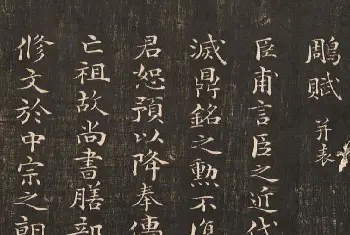 鵰賦 并表
臣甫言臣之近代
滅鼎銘之勲不復
君恕預以降奉儒
亡祖故尚書膳部
修文於中宗之朝